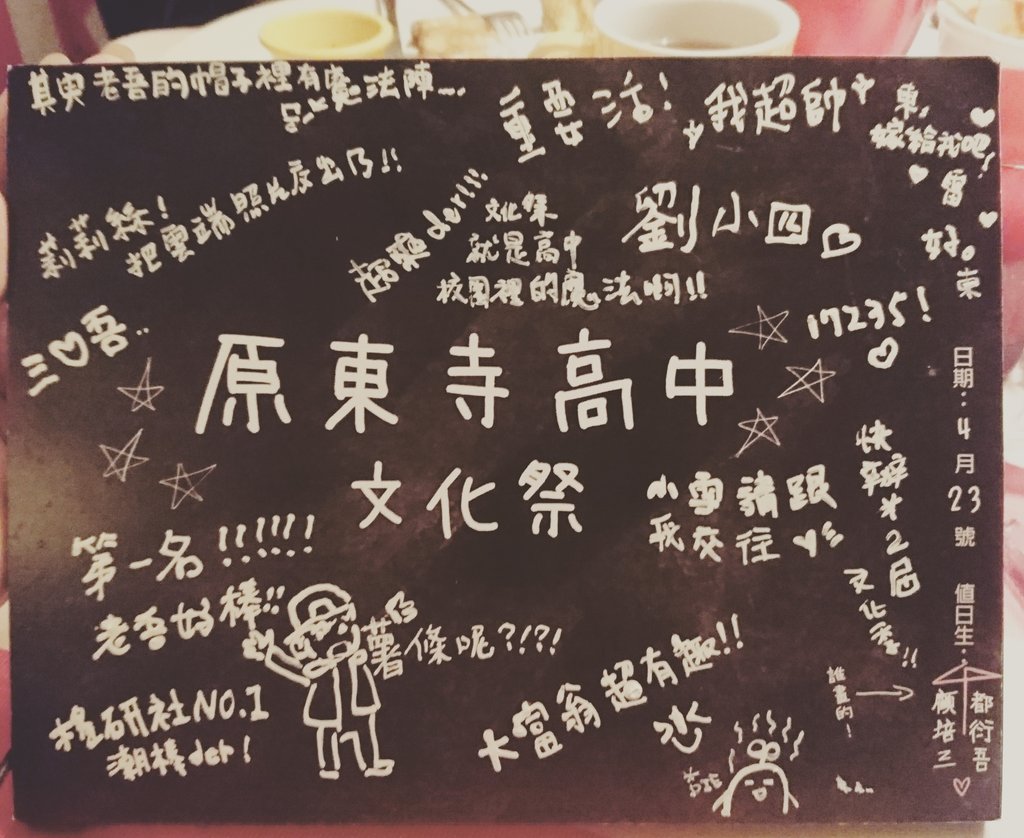 其奧老吾的帽子裡有魔法陣...
重要活!
我超帥
東,
嫁給我吧!
雷
好。東
莉莉絲!
把雲端照片交出乃!!
超強der!!!
文化祭
就是高中
校園裡的魔法啊!!
劉小四
三♡吾..
17235!
原東寺高中
文化祭
日期:4月23號 值日生:
都衍吾
顧培三
小雪請跟
我交往
快辦第2屆
文化季!!
第一名!!!!!!
老吾好棒!!
薯條呢?!?!
檯研社NO.1
潮棒der!
大富翁超有趣!!
誰畫的!